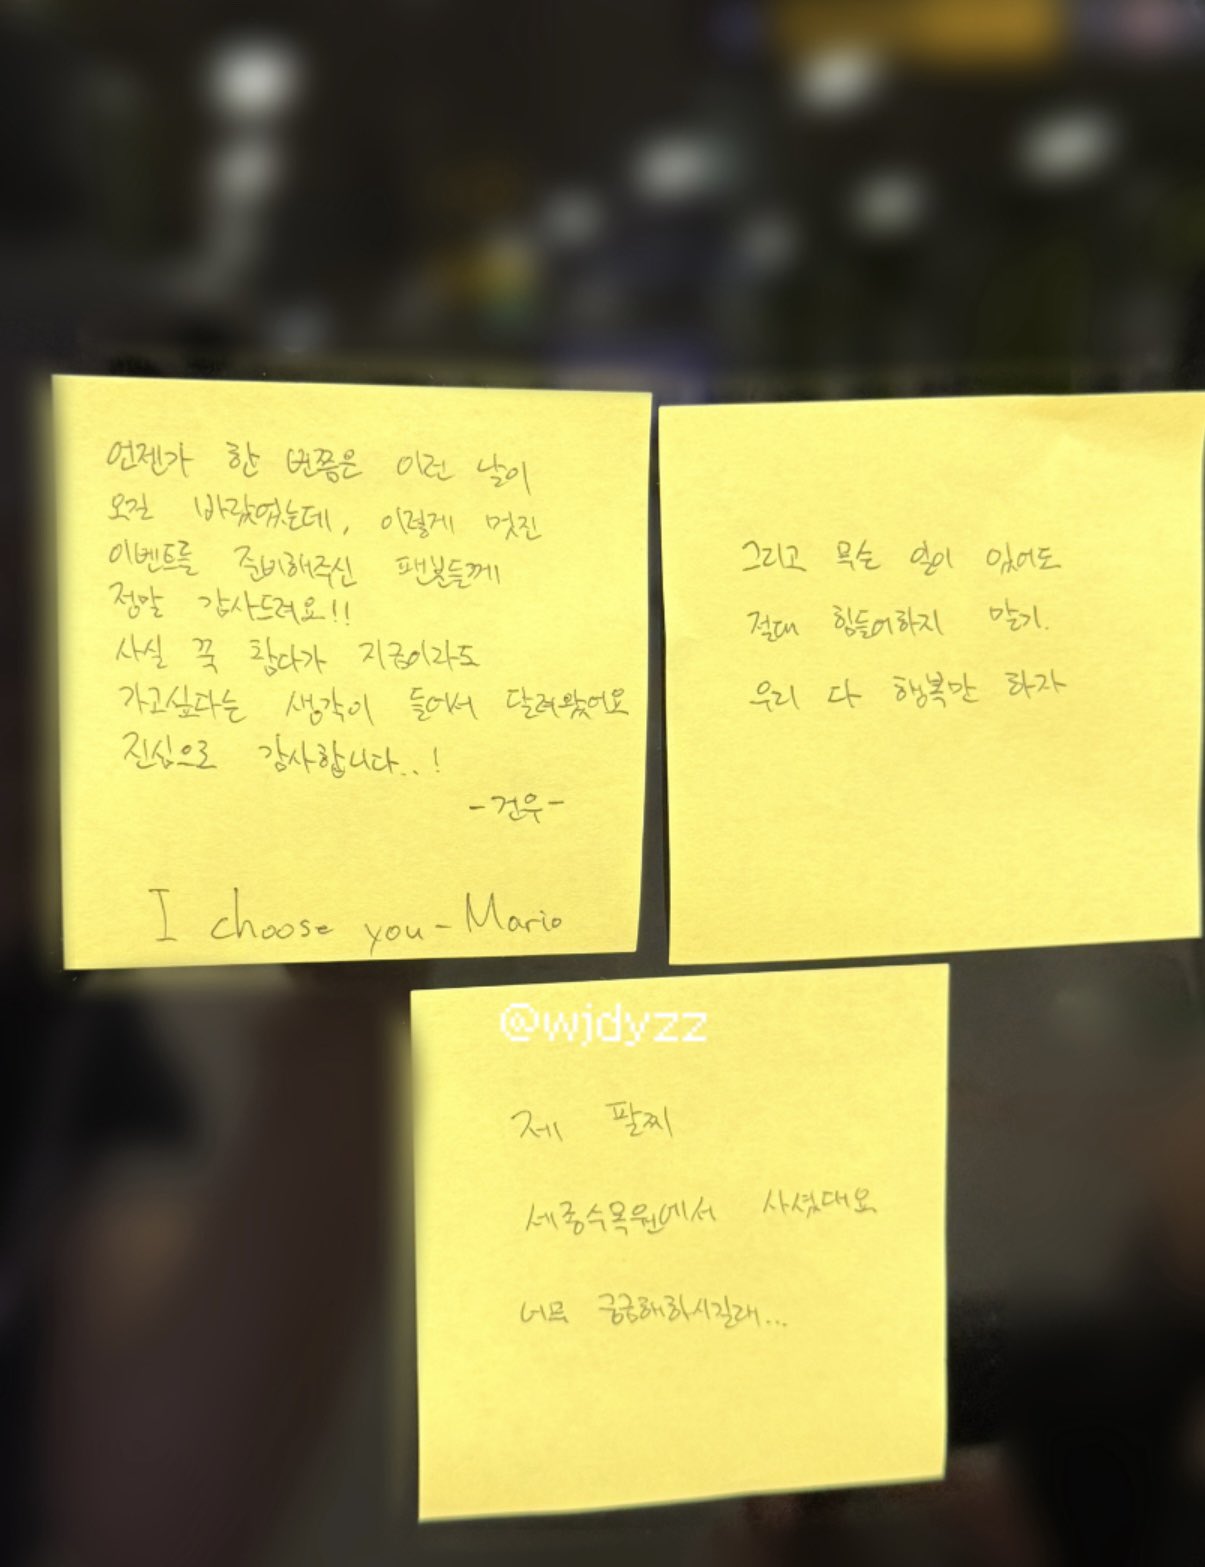 언젠가 한 번쯤은 이런 날이
오길 바랐었는데, 이렇게 멋진
이벤트를 준비해주신 팬분들께
정말 감사드려요!!
사실 꾹 참다가 지금이라도
가고싶다는 생각이 들어서 달려왔어요
진심으로 감사합니다..!
-건우-
I choose you - Mario
그리고 무슨 일이 있어도
절대 힘들어하지 말기.
우리 다 행복만 하자
@wjdyzz
제 팔찌
세종수목원에서 사셨대요
너무 궁금해하시길래...